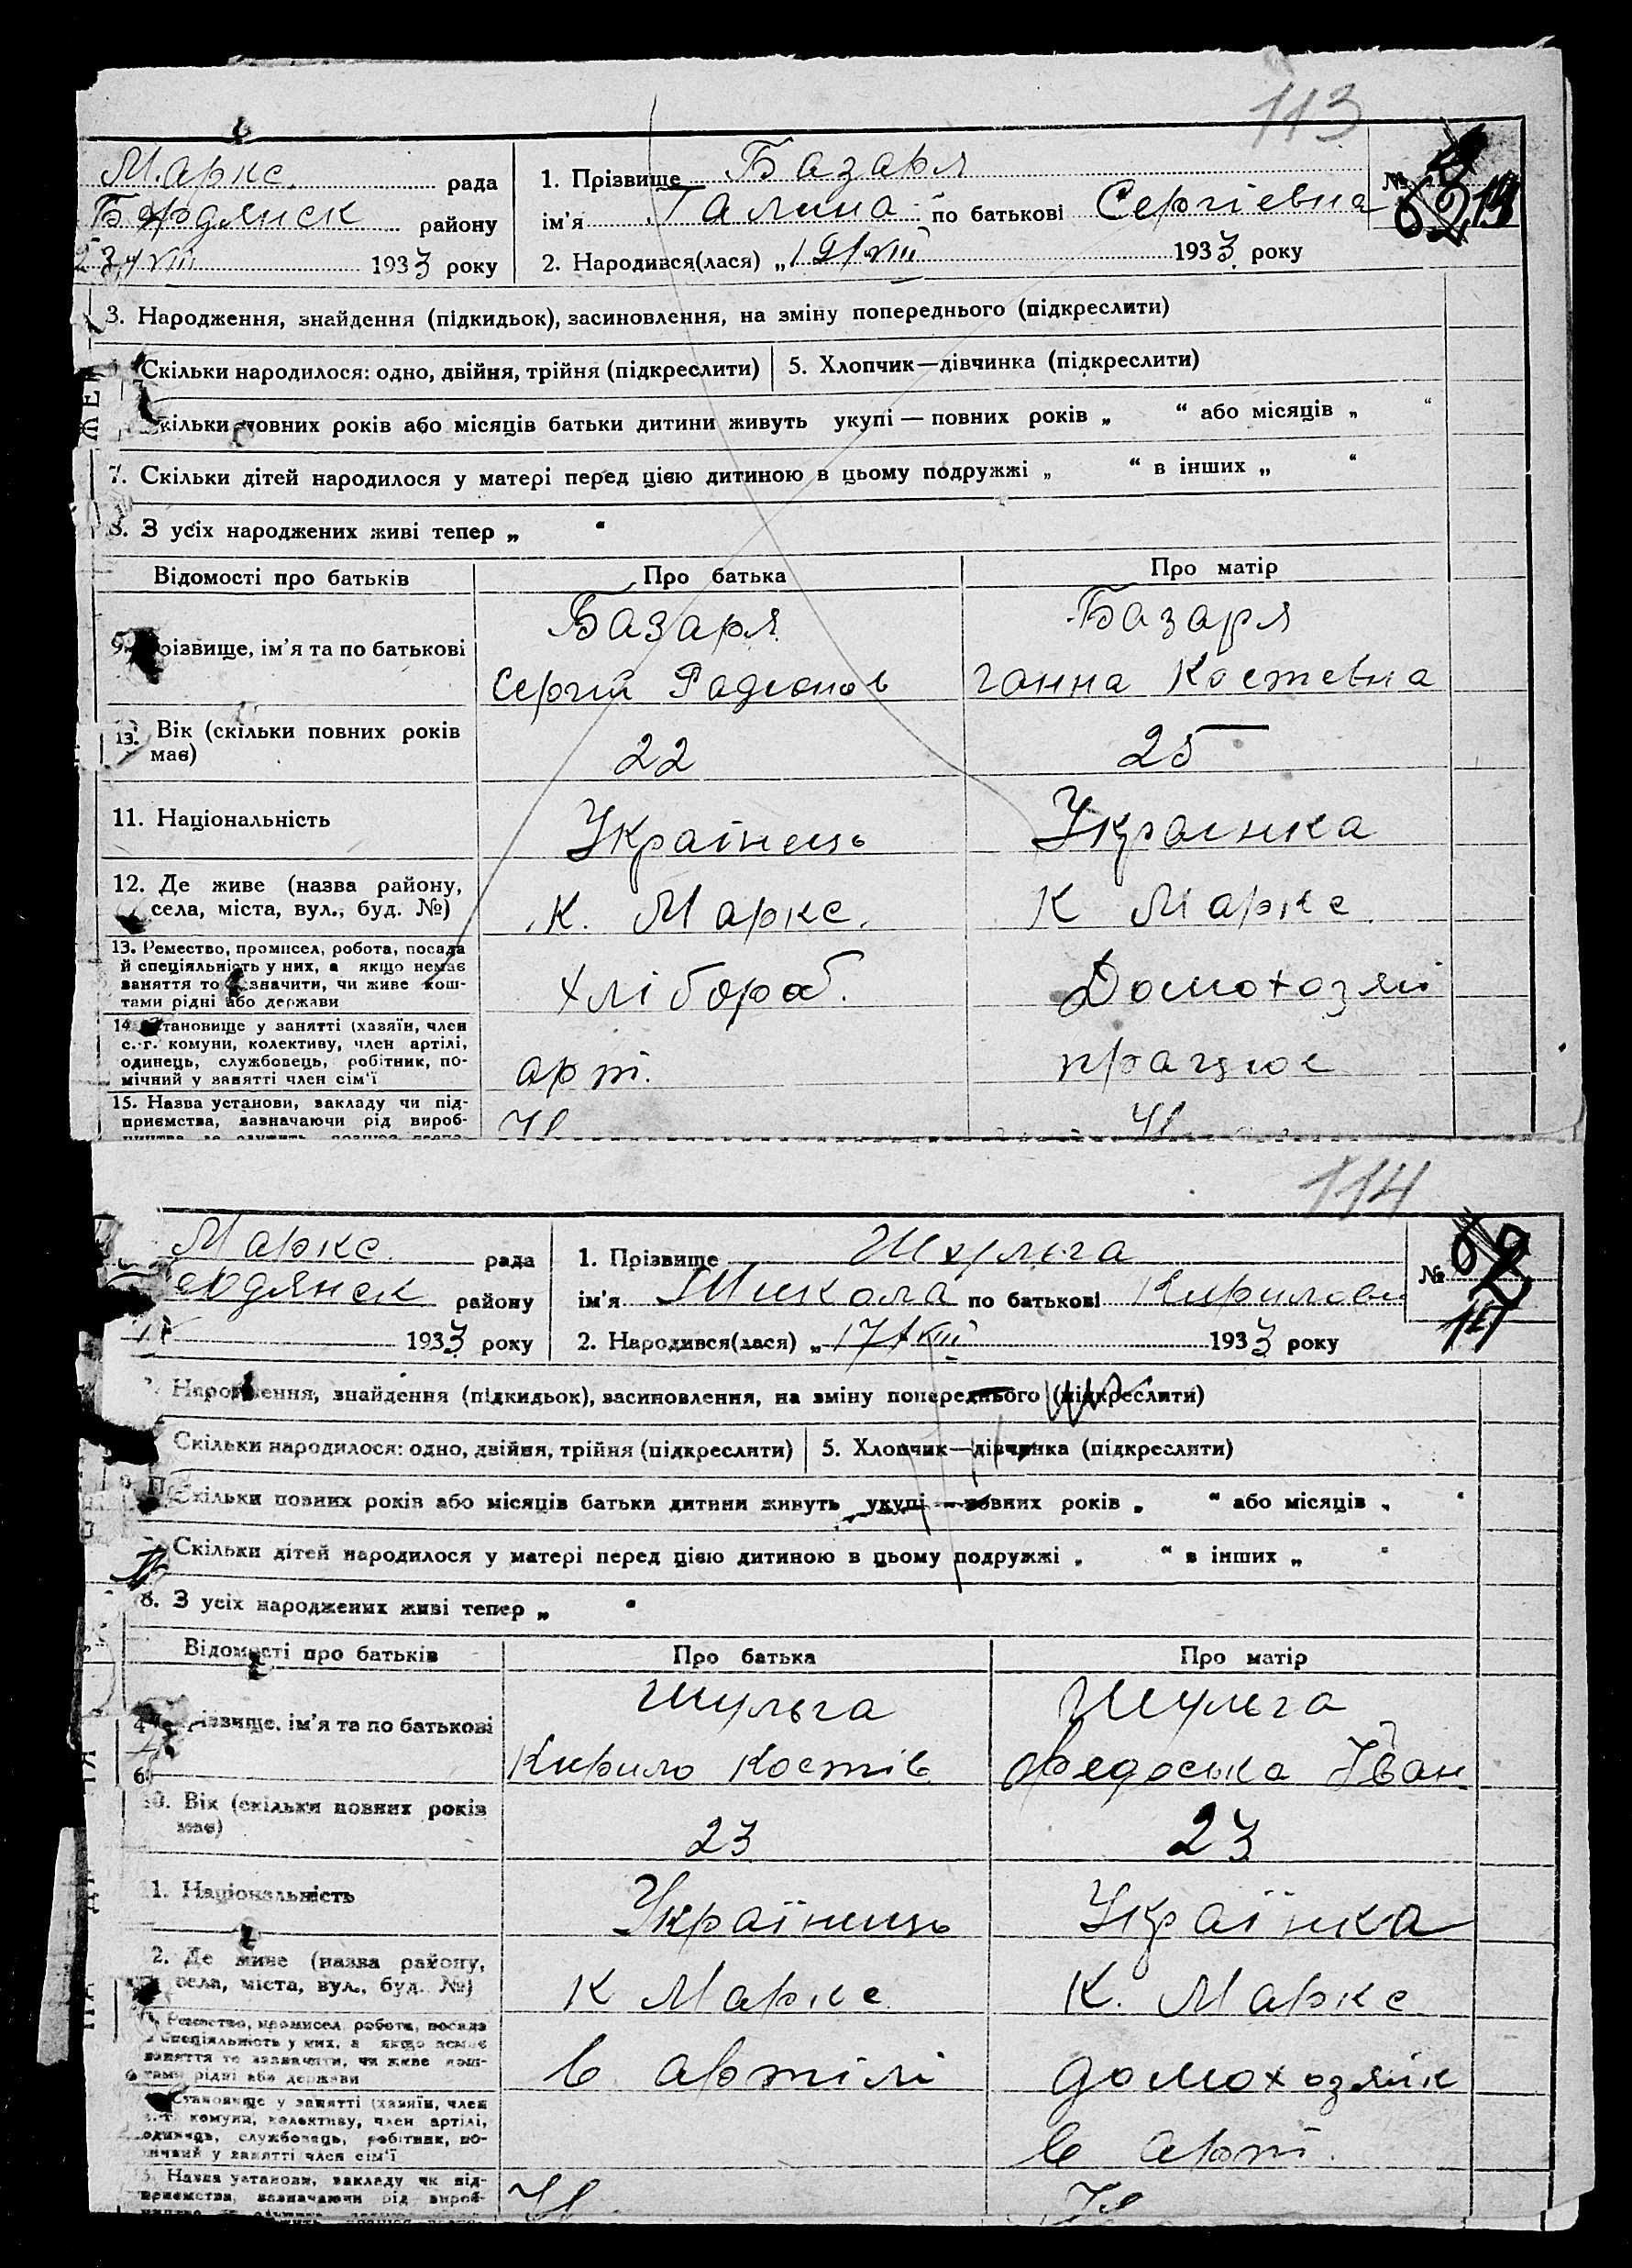 113
Маркс. рада
Бердянск району
23/VIII 1933 року
1. Прізвище Базаря
ім'я Галина по батькові Сергіевна
2. Народився(лася) „19/VIII 1933 року
№
3. Народження, знайдення (підкидьок), засиновлення, на зміну попереднього (підкреслити)
Скільки народилося: одно, двійня, трійня (підкреслити) 5. Хлопчик—дівчинка (підкреслити)
повних років або місяців батьки дитини живуть укупі — повних років „ “ або місяців „ “
7. Скільки дітей народилося у матері перед цією дитиною в цьому подружжі „ “ в інших „ “
8. З усіх народжених живі тепер „ “
Відомості про батьків Про батька Про матір
9. різвище, ім'я та по батькові
Базаря Базаря
Сергій Радіонов Ганна Костевна
Вік (скільки повних років
має)
22 25
11. Національність
Українець Украинка
12. Де живе (назва району,
села, міста, вул., буд. №)
К. Маркс. К Маркс.
13. Ремество, промисел, робота, посада
й спеціяльність у них, а якщо немає
заняття то зазначити, чи живе кош-
тами рідні або держави
хлібороб. Домохозяй
14. становище у занятті (хазяїн, член
с.-г. комуни, колективу, член артілі,
одинець, службовець, робітник, по-
мічний у занятті член сім'ї
арт. працює
15. Назва установи, закладу чи під-
приємства, зазначаючи рід вироб-
114
Маркс. рада
рдянск району
1933 року
1. Прізвище Шульга
ім'я Микола по батькові Кирилови
2. Народився(лася) „17/VIII 1933 року
№
Народження, знайдення (підкидьок), засиновлення, на зміну попереднього (підкреслити)
Скільки народилося: одно, двійня, трійня (підкреслити) 5. Хлопчик—дівчинка (підкреслити)
Скільки повних років або місяців батьки дитини живуть укупі — повних років „ “ або місяців „ “
Скільки дітей народилося у матері перед цією дитиною в цьому подружжі „ “ в інших „ “
8. З усіх народжених живі тепер „ “
Відомості про батьків Про батька Про матір
різвище, ім'я та по батькові
Шульга Шульга
Кирило Костів Федоська Іван
10. Вік (скільки повних років
має)
23 23
1. Національність
Українець Українка
2. Де живе (назва району,
села, міста, вул., буд. №)
К Маркс К. Маркс
Ремество, промисел, робота, посада
й спеціяльність у них, а якщо немає
заняття то зазначити, чи живе кош-
тами рідні або держави
в артілі домохозяйк
Становище у занятті (хазяїн, член
с.-г. комуни, колективу, член артілі,
одинець, службовець, робітник, по-
мічний у занятті член сім'ї
в арт.
15. Назва установи, закладу чи під-
приємства, зазначаючи рід вироб-